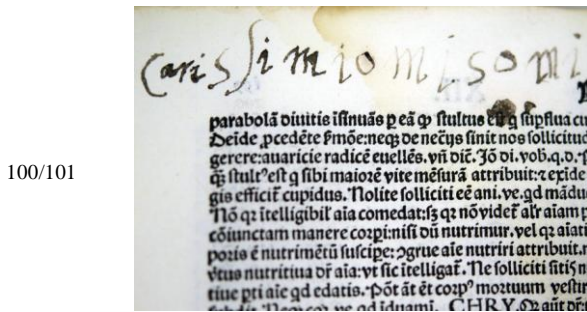 Carissimi omi somi
100/101
parabolā diuitis iſinuās ꝑ eā ꝙ ſtultus
Deīde ꝓcedēte ẜmōe:neqꝫ de necijs ſinit nos ſollicitud
gerere:auaricie radicē euellēs.vñ dic̄.Jō di.vob.q.d.
ſtultꝰeſt q ſibi maiorē vite mēſurā attribuit:⁊ exīde
gis efficit̄ cupidus.Nolite ſolliciti eē ani.ve.qd mādu
Nō qꝛ ītelligibil' aīa comedat:ſꝫ qꝛ nō videt̄ al'r aīam p
cōiunctam manere corpi:niſi dū nutrimur.vel qꝛ aīati
poris ē nutrimētū ſuſcipe:ꝯgrue aīe nutriri attribuit.
v̄tus nutritiua dr̄ aīa:vt ſic ītelligat̄.Ne ſolliciti ſitis
tiue pti aīe qd edatis.Pōt āt ēt corpꝰ mortuum veſtir
CHRY.